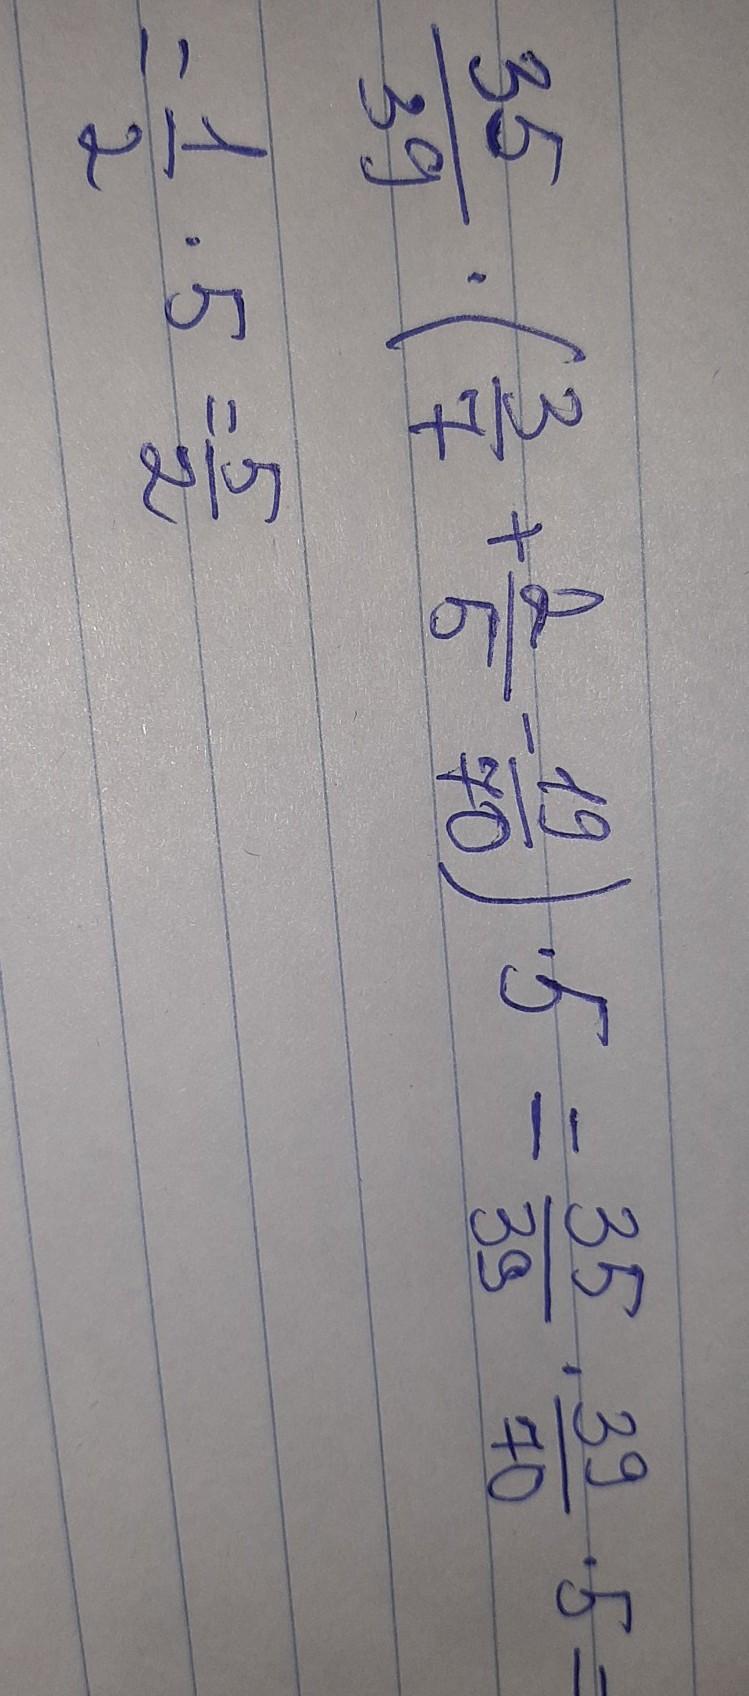 35/39 · (3/7 + 2/5 - 19/70) · 5 = 35/39 · 39/70 · 5 =
= 1/2 · 5 = 5/2